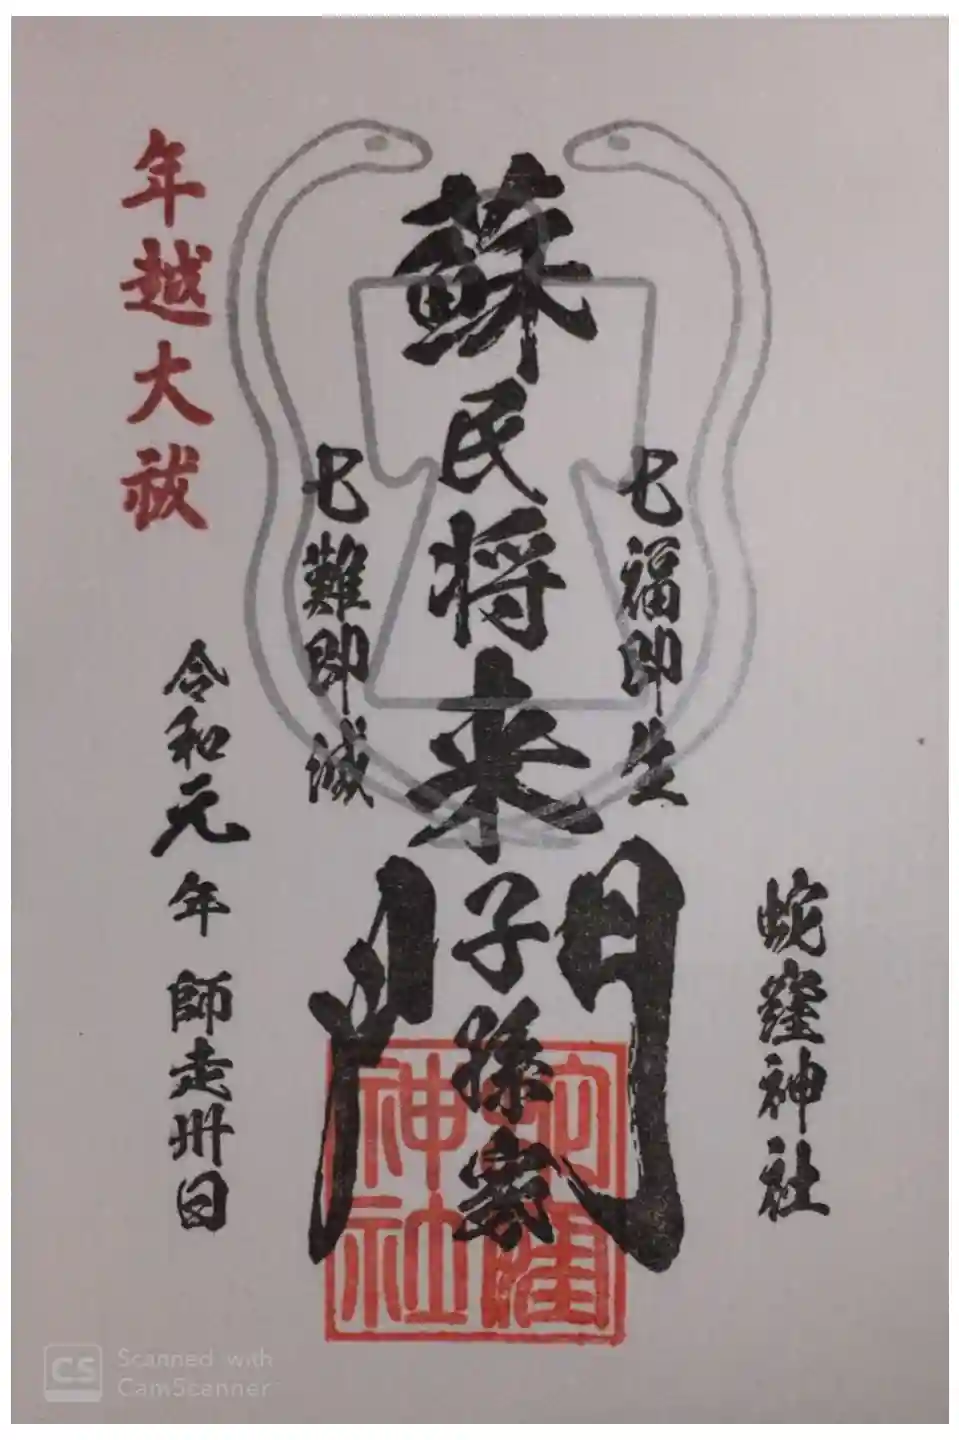 蛇窪神社
七福即生
蘇民将来子孫家門
七難即滅
年越大祓
令和元年 師走卅日
蛇窪
神社
Scanned with
CamScanner
CS